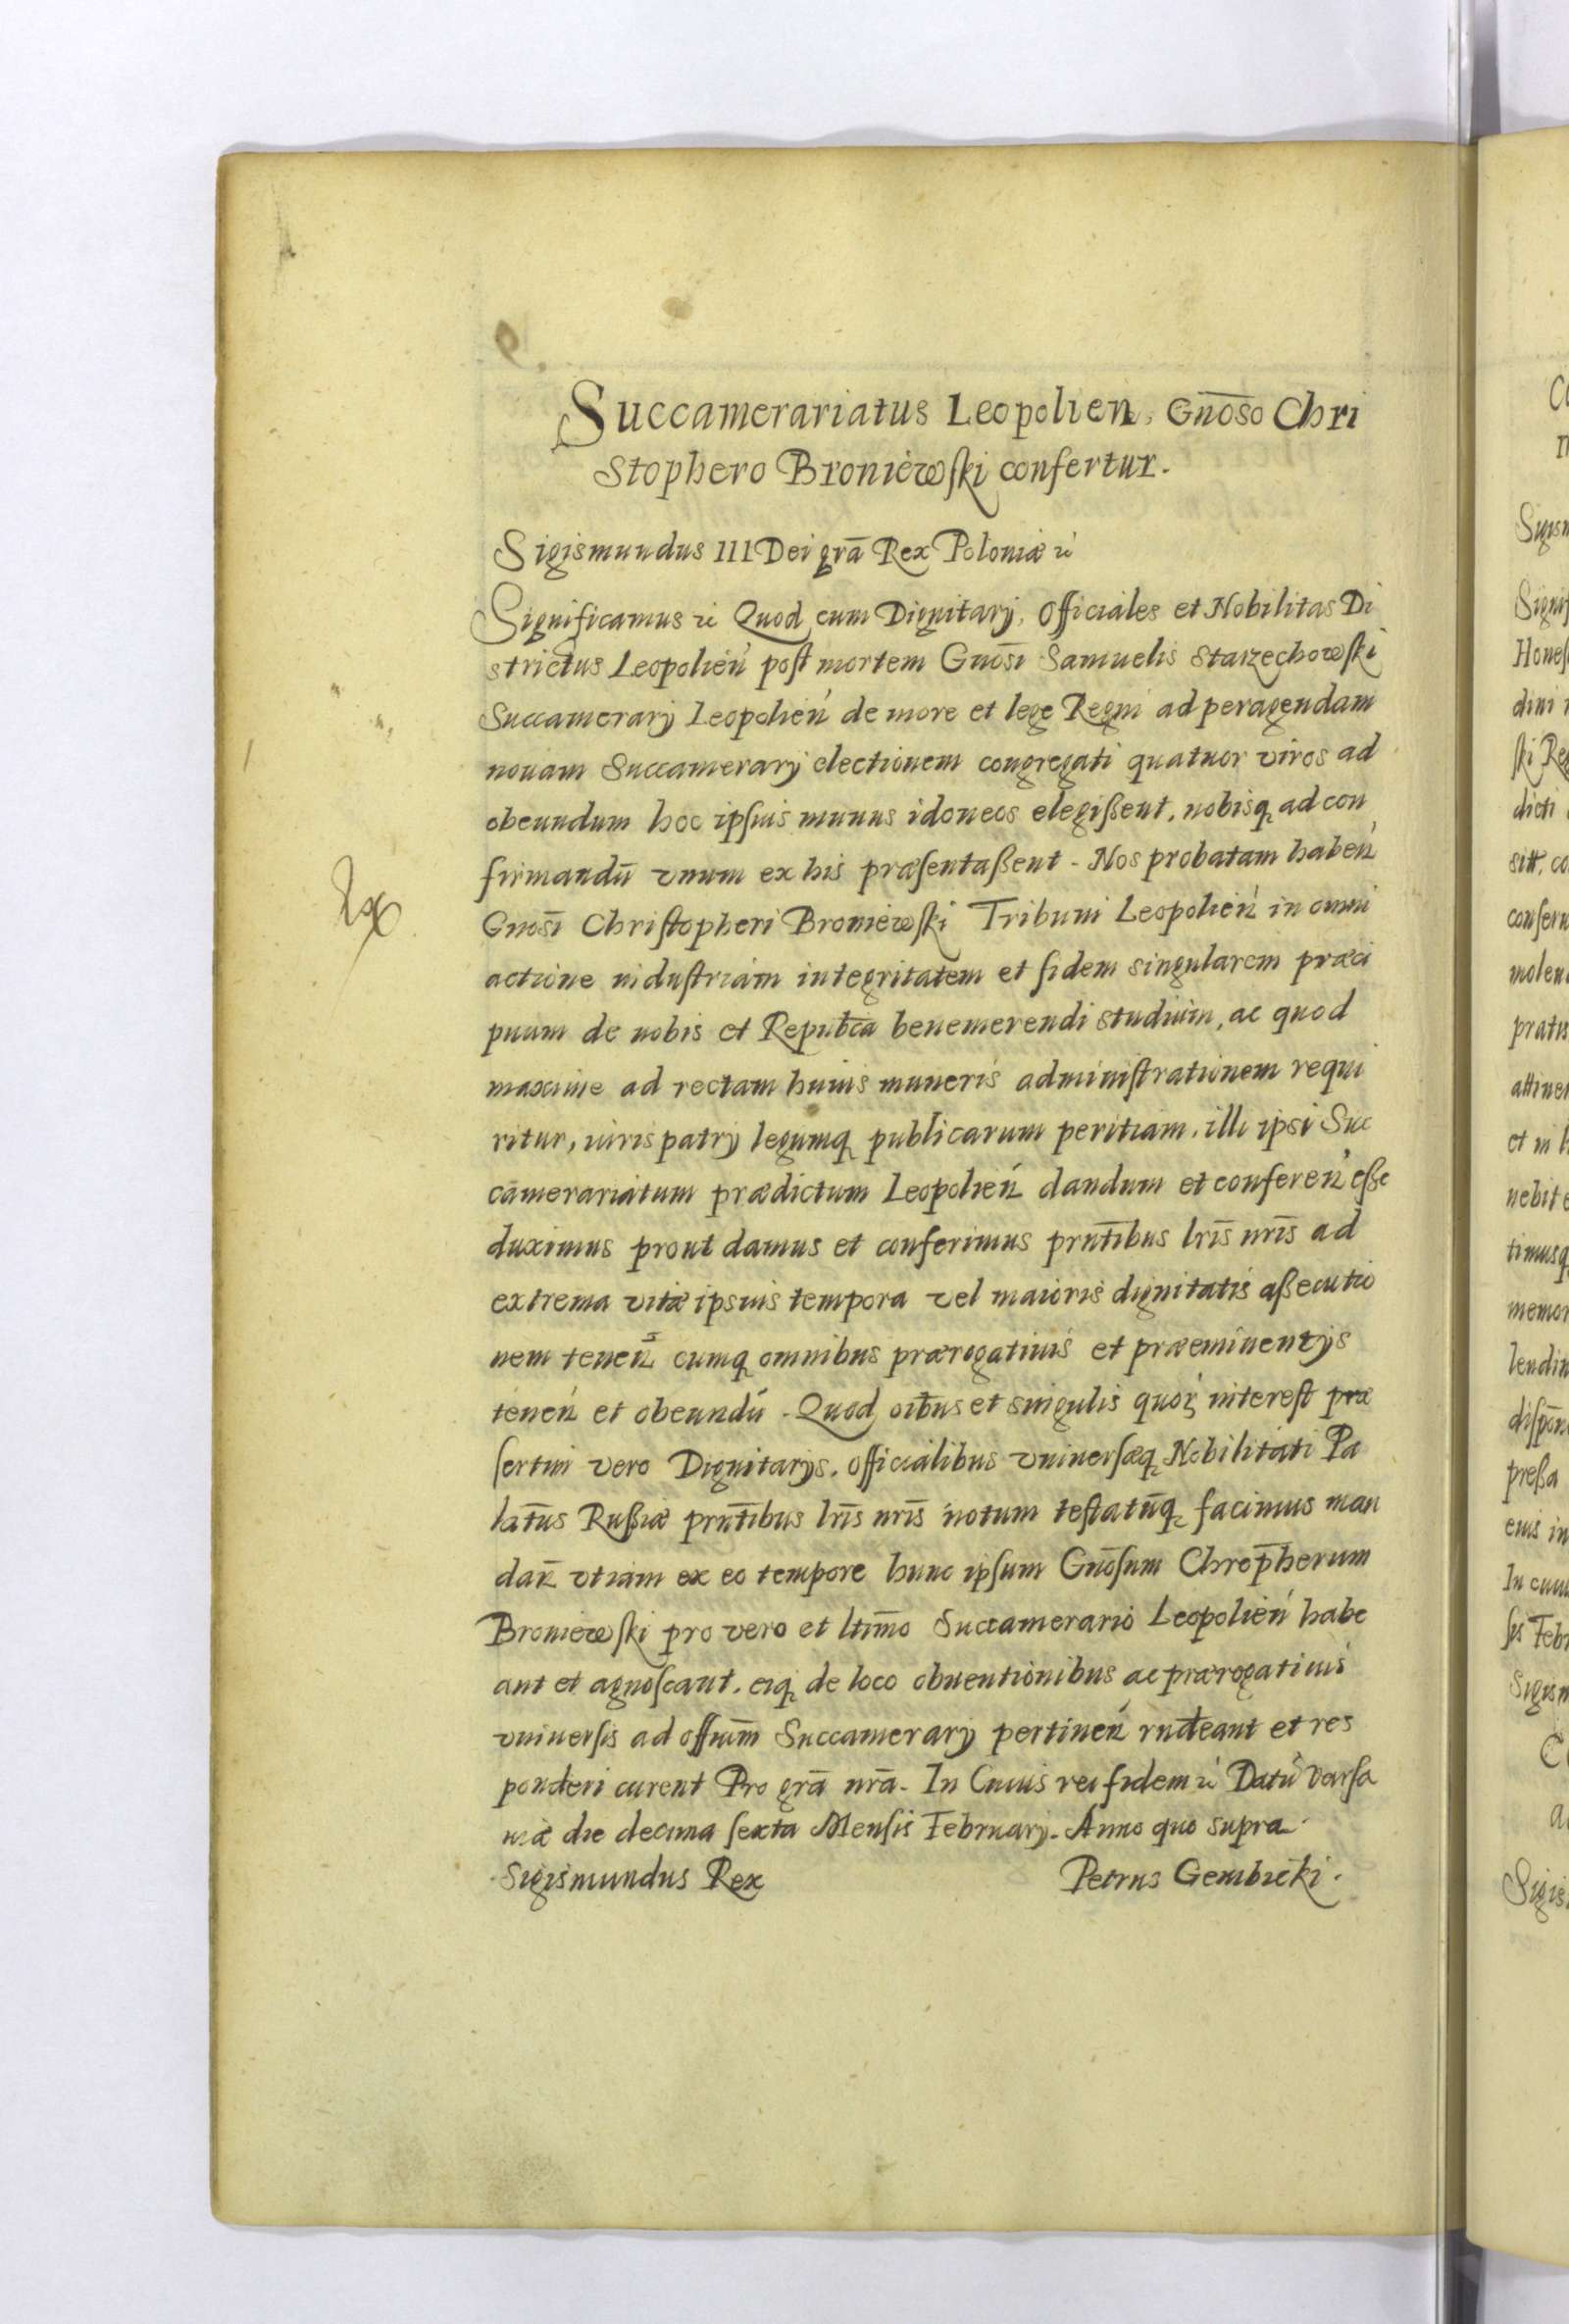 Succamerariatus Leopolień, Gnōso Chri
stophero Broniewski confertur.
Sigismundus III Dei grā Rex Poloniæ
Significamus Quod cum Dignitarij, Officiales et Nobilitas Di
strictus Leopolień post mortem Gnōsi Samuelis Starzechowski
Succamerarij Leopolień de more et lege Regni ad peragendam
nouam Succamerarij electionem congregati quatuor viros ad
obeundum hoc ipsius munus idoneos elegißent, nobisq ad con
firmandū vnum ex his præsentaßent. Nos probatam habeń
Gnosī Christopheri Broniewski Tribuni Leopolień in omni
actione industriam integritatem et fidem singularem præci
puum de nobis et Republca benemerendi studium, ac quod
maxime ad rectam huius muneris administrationem requi
ritur, iuris patrij legumq publicarum peritiam, illi ipsi Suc
camerariatum prædictum Leopolień dandum et confereń eße
duximus prout damus et conferimus prntībus lrīs nrīs ad
extrema vitæ ipsius tempora vel maioris dignitatis aßecutio
nem teneń cumq omnibus prærogatiuis et præeminentijs
teneń et obeundū. Quod oībus et singulis quoꝝ interest præ
sertim vero Dignitarijs, Officialibus vniuersæq Nobilitati Pa
latūs Rußiæ prntībus lrīs nrīs notum testatūq facimus man
dań vtiam ex eo tempore hunc ipsum Gnōsum Chrophērum
Broniewski pro vero et ltīmo Succamerario Leopolień habe
ant et agnoscant, eiq de loco obuentionibus ac prærogatiuis
vniuersis ad offiūm Succamerarij pertineń rndeant et res
ponderi curent Pro grā nrā. In Cuius rei fidem Datū Varsa
uiæ die decima sexta Mensis Februarij. Anno quo supra.
Sigismundus Rex Petrus Gembicki.